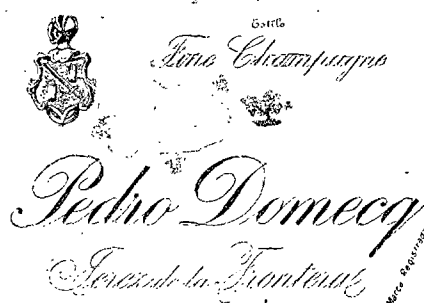 Estilo
Fine Champagne
Pedro Domecq
Jerez de la Frontera
Marca Registrada